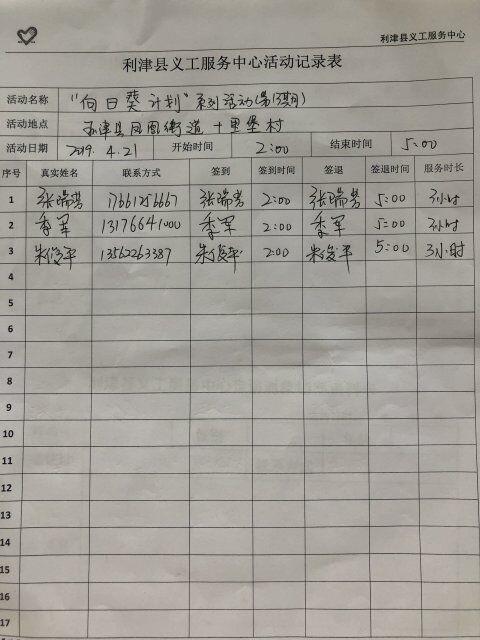 利津县义工服务中心
利津县义工服务中心活动记录表
活动名称 “向日葵计划”系列活动(第13期)
活动地点 利津县凤凰街道十里堡村
活动日期 2019.4.21 开始时间 2:00 结束时间 5:00
序号 真实姓名 联系方式 签到 签到时间 签退 签退时间 服务时长
1 张瑞芳 17661256667 张瑞芳 2:00 张瑞芳 5:00 3小时
2 季军 13176641000 季军 2:00 季军 5:00 3小时
3 朱俊平 13562263387 朱俊平 2:00 朱俊平 5:00 3小时
4
5
6
7
8
9
10
11
12
13
14
15
16
17